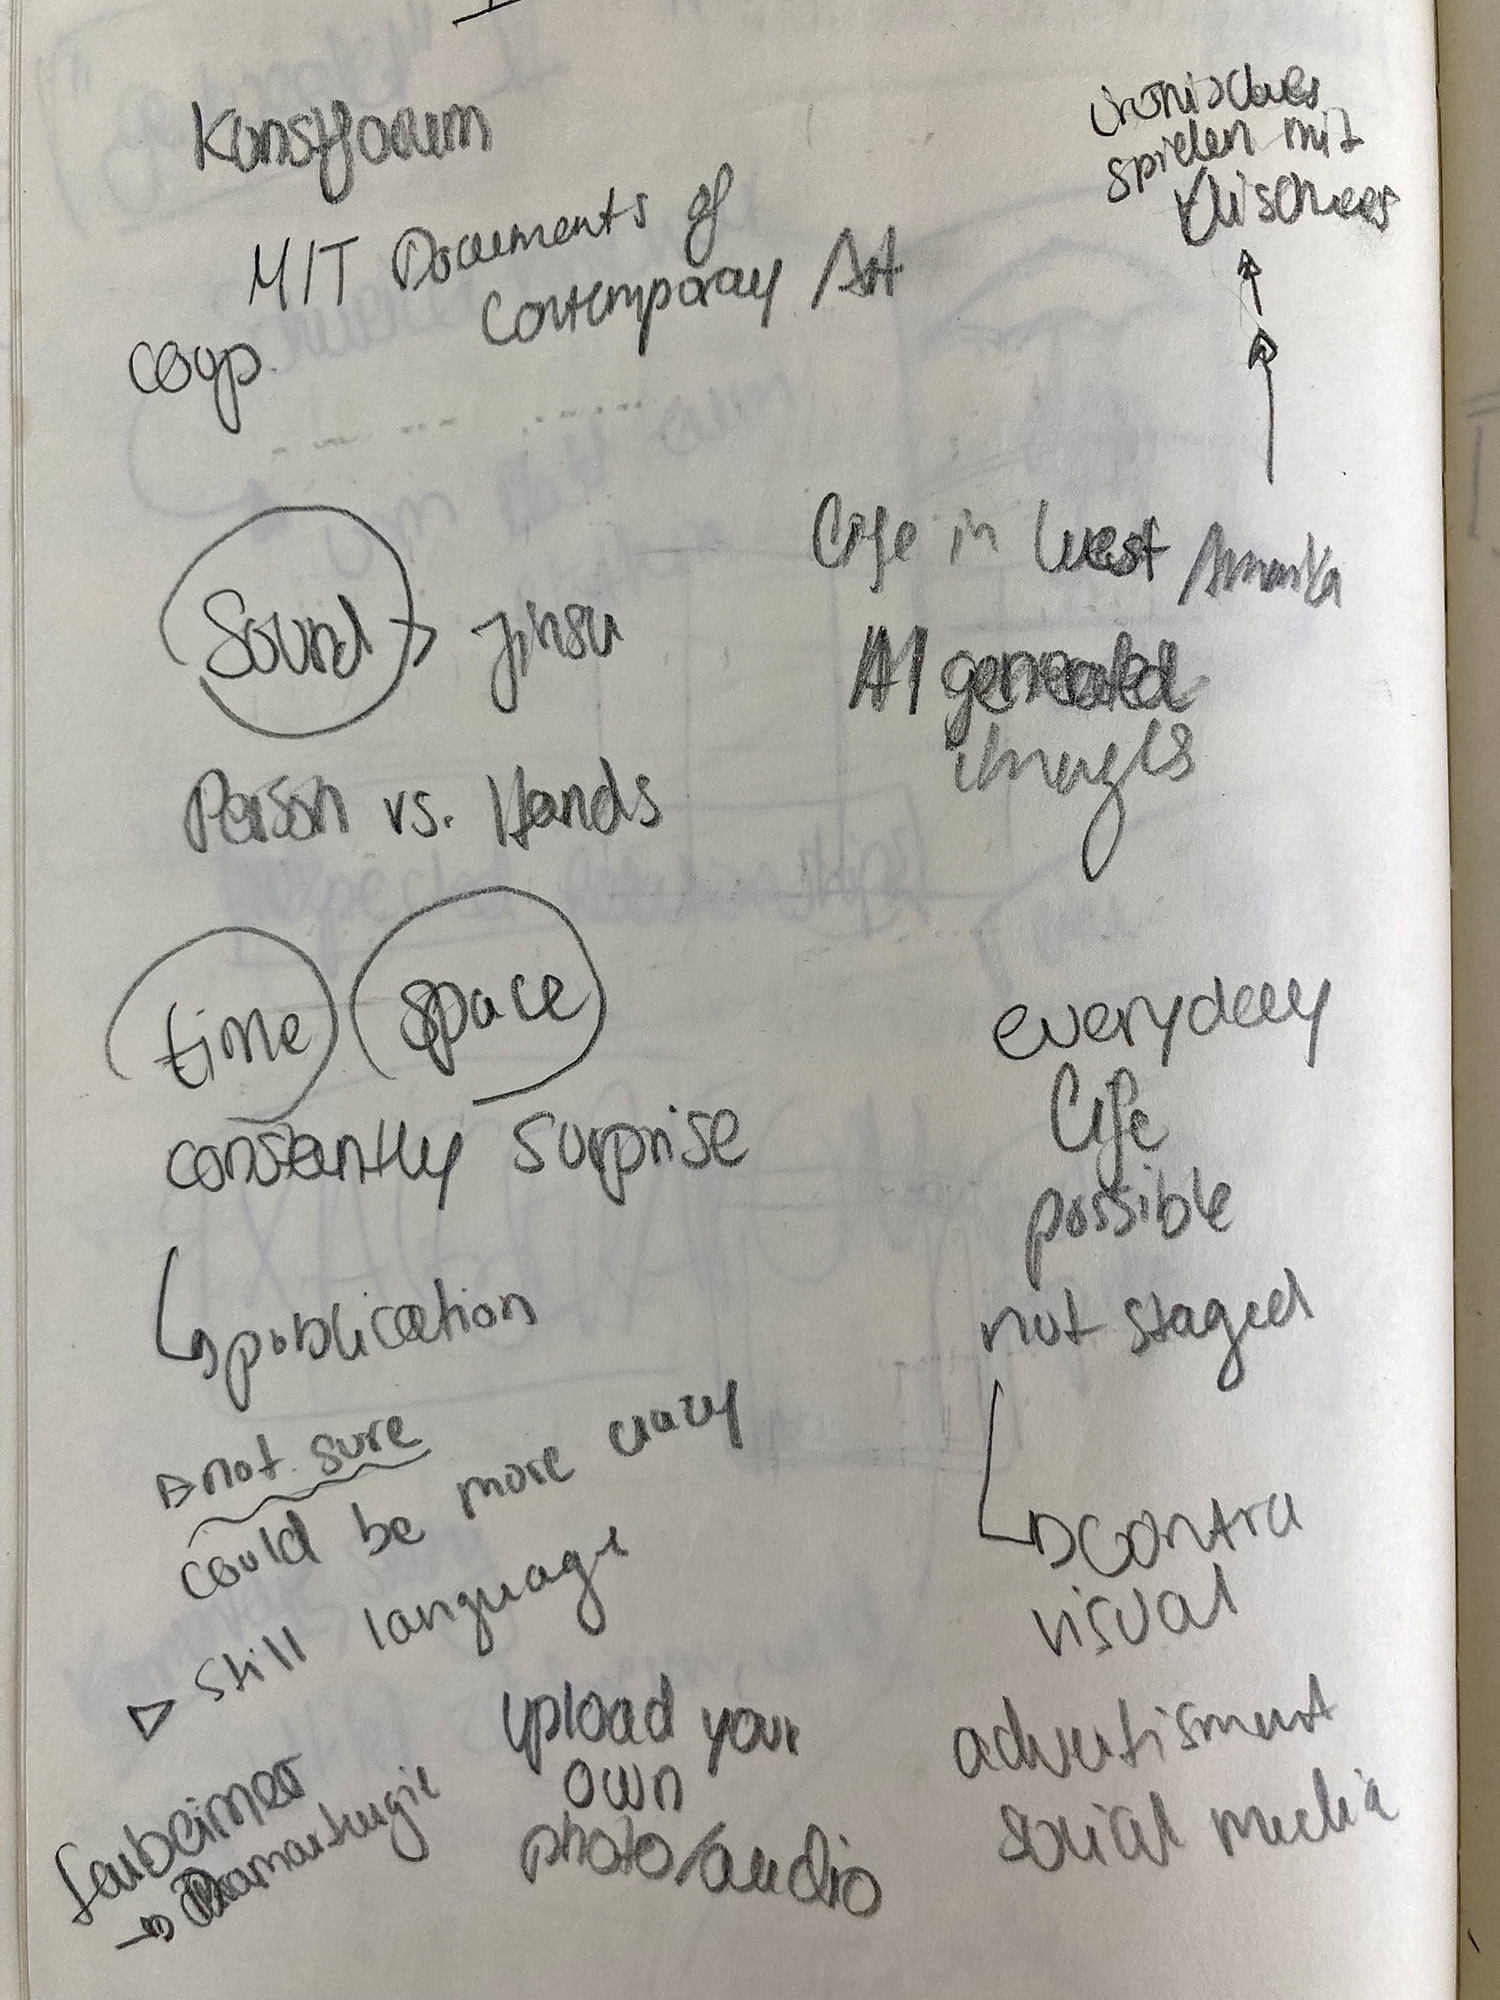 Kunstforum
MIT Documents of
Contemporary Art
ironisches
spielen mit
Klischees
Sound → Jinsu
Person vs. Hands
Life in West Amerika
AI generated
images
time space
constantly surprise
publication
not sure
could be more crazy
still language
everyday
life
possible
not staged
contra
visual
advertisment
social media
upload your
own
photo/audio
→ Dramaturgie